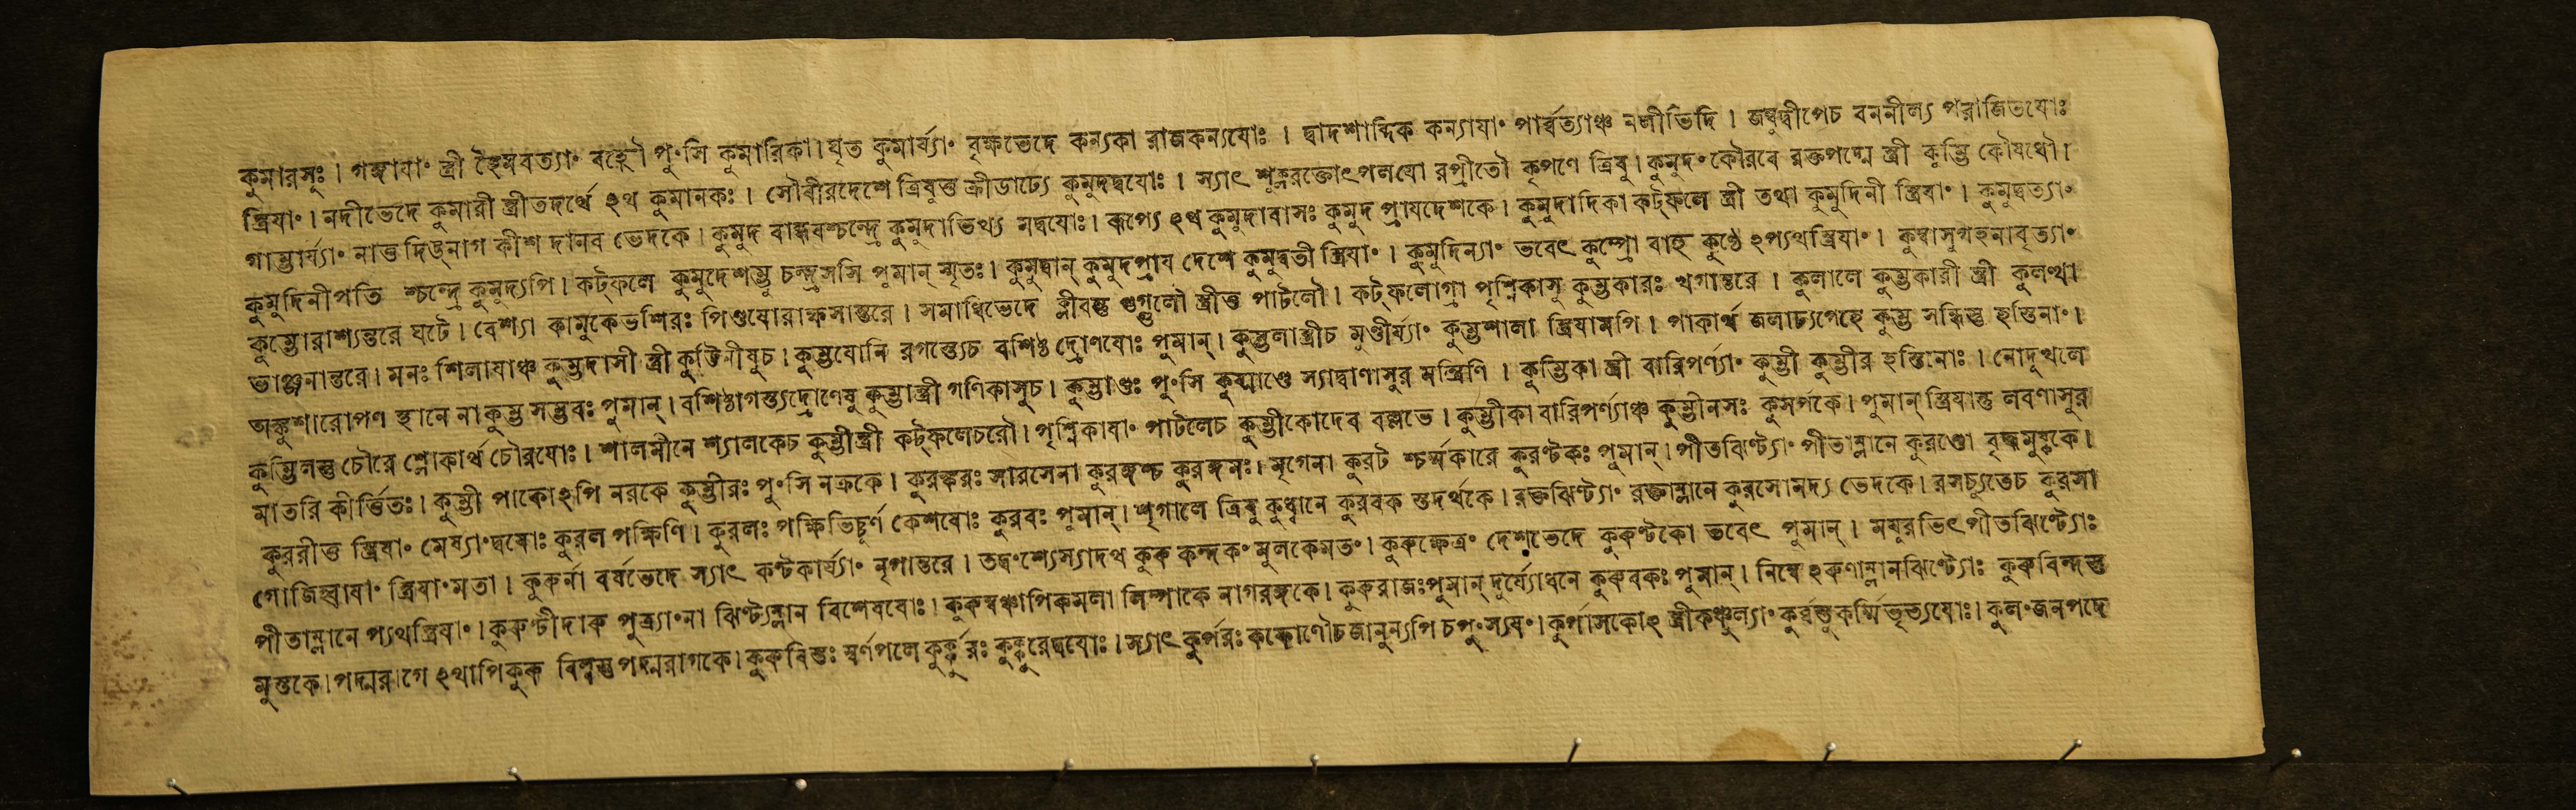 কুমারসূঃ । গঙ্গাযাং স্ত্রী হৈমবত্যাং বহ্নৌ পুংসি কুমারিকা । ঘৃত কুমার্য্যাং বৃক্ষভেদে কন্যকা রাজকন্যযোঃ । দ্বাদশাব্দিক কন্যাযাং পার্ব্বত্যাঞ্চ নলীভিদি । জম্বুদ্বীপেচ বননীল্য পরাজিতযোঃ
স্ত্রিযাং । নদীভেদে কুমারী স্ত্রীতদর্থে ঽথ কুমানকঃ । সৌবীরদেশে ত্রিষুত্ত ক্রীডাঢ্যে কুমুদদ্বযোঃ । স্যাৎ শূক্লরক্তোৎপলযো রপ্রীতৌ কৃপণে ত্রিষু । কুমুদং কৌরবে রক্তপদ্মে স্ত্রী কুম্ভি কৌষধৌ ।
গাম্ভার্য্যাং নাত্ত দিঙ্নাগ কীশ দানব ভেদকে । কুমুদ বান্ধবশ্চন্দ্রে কুমুদাভিখ্য মদ্বযোঃ । রূপ্যে ঽথ কুমুদাবাসঃ কুমুদ প্রাযদেশকে । কুমুদাদিকা কট্ফলে স্ত্রী তথা কুমুদিনী স্ত্রিযাং । কুমুদ্বত্যাং
কুমুদিনীপতি শ্চন্দ্রে কুমুদ্যপি । কট্ফলে কুমুদেশম্ভু চন্দ্রমসি পুমান্ স্মৃতঃ । কুমুদ্বান্ কুমুদপ্রায দেশে কুমুদ্বতী স্ত্রিযাং । কুমুদিন্যাং ভবেৎ কুম্প্রো বাহু কুণ্ঠে ঽপ্যথস্ত্রিযাং । কুম্বাসুগহনাবৃত্যাং
কুম্ভোরাশ্যন্তরে ঘটে । বেশ্যা কামুকেভশিরঃ পিণ্ডযোরাক্ষসান্তরে । সমাধিভেদে ক্লীবন্তু গুগ্গুলৌ স্ত্রীত্ত পাটলৌ । কট্ফলোগ্রা পৃশ্নিকাসু কুম্ভকারঃ খগান্তরে । কুলালে কুম্ভকারী স্ত্রী কুলথ্যা
ভাঞ্জনান্তরে । মনঃ শিলাযাঞ্চ কুম্ভদাসী স্ত্রী কুট্টিনীষুচ । কুম্ভযোনি রগস্ত্যেচ বশিষ্ঠ দ্রোণযোঃ পুমান্ । কুম্ভলাস্ত্রীচ মুণ্ডীর্য্যাং কুম্ভশালা স্ত্রিযামপি । পাকার্থ জলাঢ্যগেহে কুম্ভ সন্ধিস্তু হস্তিনাং ।
অঙ্কুশারোপণ স্থানে নাকুম্ভ সম্ভবঃ পুমান্ । বশিষ্ঠাগস্ত্যদ্রোণেষু কুম্ভাস্ত্রী গণিকাসুচ । কুম্ভাণ্ডঃ পুংসি কুষ্মাণ্ডে স্যাদ্বাণাসুর মন্ত্রিণি । কুম্ভিকা স্ত্রী বারিপর্ণ্যাং কুম্ভী কুম্ভীর হস্তিনোঃ । নোদূখলে
কুম্ভিলস্তু চৌরে শ্লোকার্থ চৌরযোঃ । শালমীনে শ্যালকেচ কুম্ভীস্ত্রী কট্ফলেচরৌ । পৃশ্নিকাযাং পাটলেচ কুম্ভীকোদেব বল্লভে । কুম্ভীকা বারিপর্ণ্যাঞ্চ কুম্ভীনসঃ কুসর্পকে । পুমান্ স্ত্রিযান্তু লবণাসুর
মাতরি কীর্ত্তিতঃ । কুম্ভী পাকোঽপি নরকে কুম্ভীরঃ পুংসি নক্রকে । কুরঙ্করঃ সারসেনা কুরঙ্গশ্চ কুরঙ্গমঃ । মৃগেনা কুরট শ্চর্ম্মকারে কুরণ্টকঃ পুমান্ । পীতঝিণ্ট্যাং পীতাম্লানে কুরণ্ডো বৃদ্ধমুষ্ককে ।
কুররীত্ত স্ত্রিযাং মেষ্যাংদ্বযোঃ কুরল পক্ষিণি । কুরলঃ পক্ষিভিচ্চূর্ণ কেশযোঃ কুরবঃ পুমান্ । শৃগালে ত্রিষু কুধ্বানে কুরবক স্তদর্থকে । রক্তঝিণ্ট্যাং রক্তাম্লানে কুরসোমদ্য ভেদকে । রসচ্যুতেচ কুরসা
গোজিহ্বাযাং স্ত্রিযাংমতা । কুরুর্না বর্ষভেদে স্যাৎ কণ্টকার্য্যাং নৃপান্তরে । তদ্বংশ্যেস্যাদথ কুরু কন্দকং মূলকেমতং । কুরুক্ষেত্রং দেশভেদে কুরুণ্টকো ভবেৎ পুমান্ । মযূরভিৎ পীতঝিণ্ট্যোঃ
পীতাম্লানে প্যথস্ত্রিযাং । কুরুণ্টীদারু পুত্র্যাংনা ঝিণ্ট্যম্লান বিশেষযোঃ । কুরুম্বঞ্চাপিকমলা লিম্পাকে নাগরঙ্গকে । কুরুরাজঃপুমান্ দুর্য্যোধনে কুরুবকঃ পুমান্ । নিম্বে ঽরুণাম্লানঝিণ্ট্যোঃ কুরুবিন্দস্তু
মুস্তকে । পদ্মরাগে ঽথাপিকুরু বিল্বস্তু পদ্মরাগকে । কুরুবিস্তঃ স্বর্ণপলে কুর্ক্কুরঃ কুক্কুরেদ্বযোঃ । স্যাৎ কুর্পরঃ কফোণৌচজানুন্যপি চপুংস্যযং । কুর্পাসকোঽ স্ত্রীকঞ্চুল্যাং কুর্ব্বন্তুকর্ম্মিভৃত্যযোঃ । কুলংজনপদে